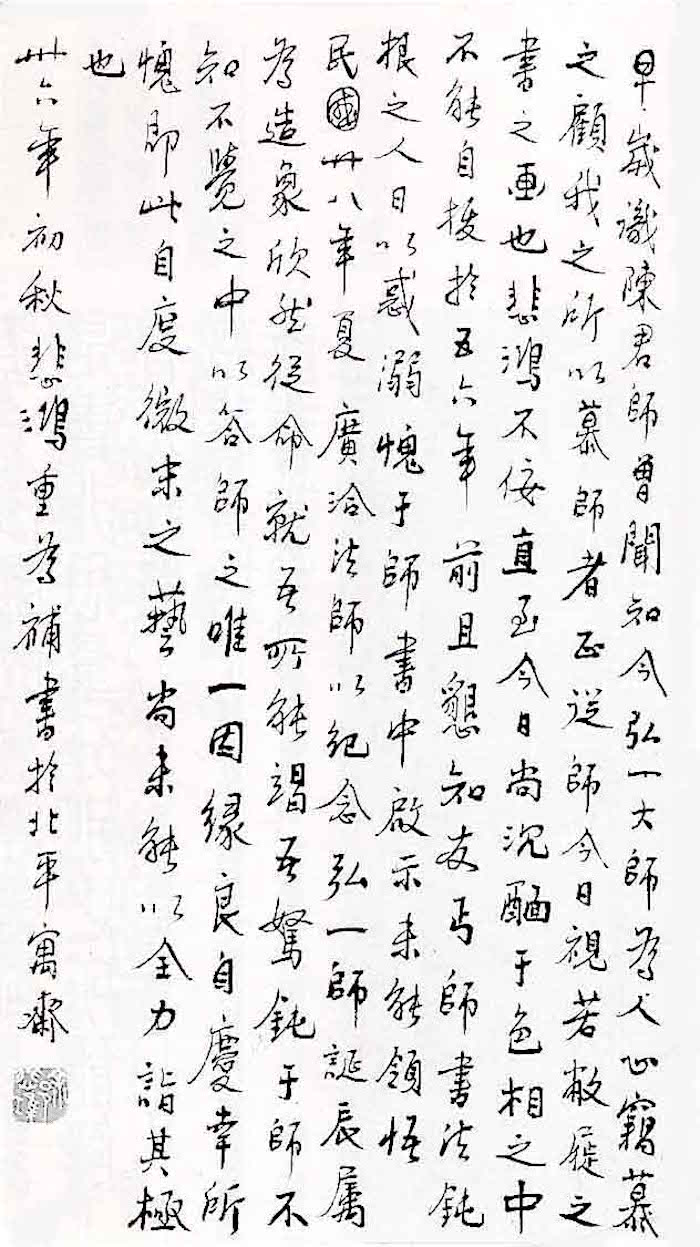 早歲識陳君師曾聞知今弘一大師為人心竊慕
之顧我之所以慕師者正從師今日視若敝屣之
書之画也悲鴻不佞直至今日尚沉酣于色相之中
不能自拔於五六年前且懇知友丐師書法鈍
根之人日以惑溺愧于師書中啟示未能領悟
民國卅八年夏廣洽法師以紀念弘一師誕辰屬
為造象欣然從命就吾所能竭吾駑鈍于師不
知不覺之中以答師之唯一因緣良自慶幸所
愧即此自度微末之藝尚未能以全力詣其極
也
卅六年初秋悲鴻重為補書於北平寓齋